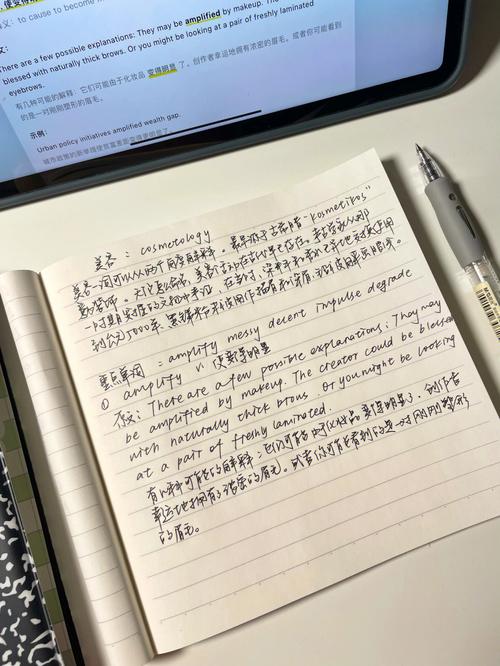 义：to cause to become m
文：
here are a few possible explanations: They may be amplified by makeup. The
blessed with naturally thick brows. Or you might be looking at a pair of freshly laminated
eyebrows.
有几种可能的解释：它们可能由于化妆品 变得明显 了。创作者幸运地拥有浓密的眉毛。或者你可能看到
的是一对刚刚塑形的眉毛。
示例：
Urban policy initiatives amplified wealth gap.
城市政策的新举措使贫富差距变得更明显了
美容：cosmetology
美容一词可以从两个角度解释。最早源于古希腊"kosmetikos"
意为装饰。
一时期
到公元5000年
重点单词：amplify messy decent impulse degrade
① amplify v. 使变得明显
原文：There are a few possible explanations: They may
be amplified by makeup. The creator could be blessed
with naturally thick brows. Or you might be looking
at a pair of freshly laminated.
有几种可能的解释：它们可能由于化妆品变得明显了，创作者
幸运地拥有了浓密的眉毛。或者你可能看到的是一对刚刚整形
的眉毛。